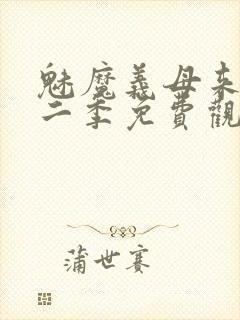 魅魔義母来
二季免費觀
蒲世赛